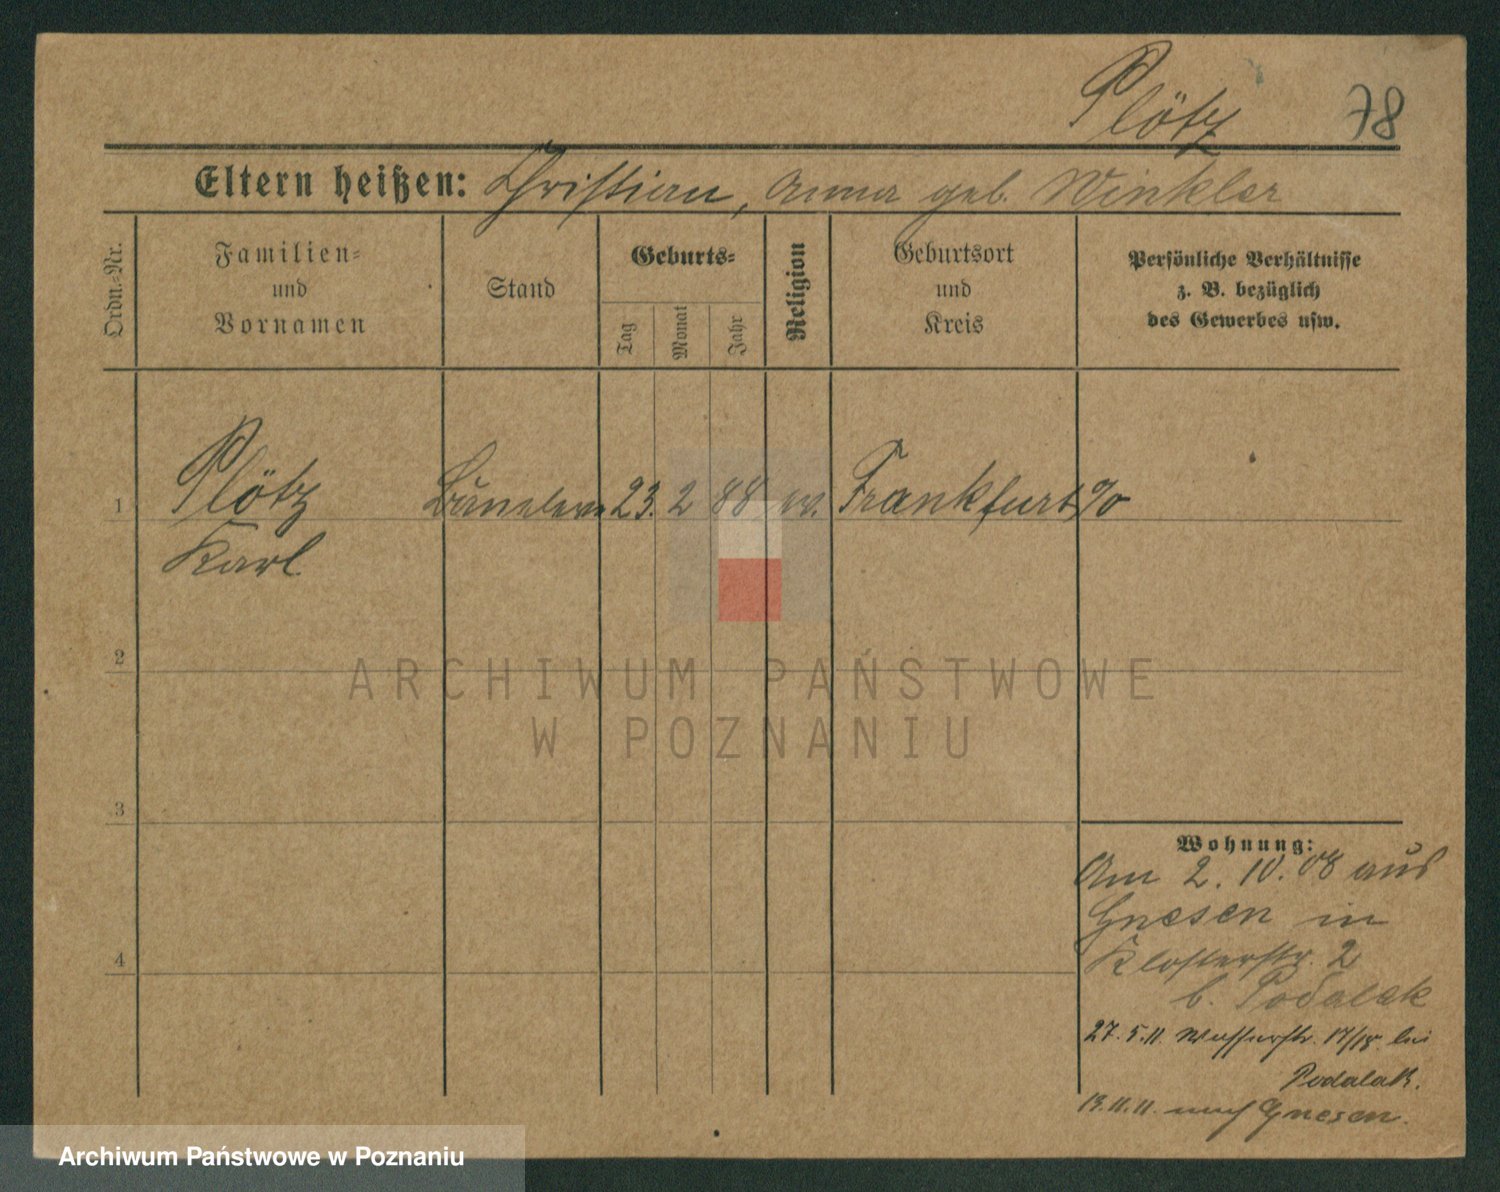 Plötz 78
Eltern heißen: Christian, Anna geb. Winkler
Ordn.-Nr.
Familien-
und
Vornamen
Stand
Geburts-
Tag
Monat
Jahr
Religion
Geburtsort
und
Kreis
Persönliche Verhältnisse
z. B. bezüglich
des Gewerbes usw.
1 Plötz 23. 2 88 Frankfurt %
Karl
2
3
4
Wohnung:
Am 2. 10. 08 aus
Gnesen in
Klosterstr. 2
b. Podalak
27. 5. 11. Wasserstr. 17/18. bei
Podalak.
13. 11. 11. nach Gnesen.
ARCHIWUM PAŃSTWOWE
W POZNANIU
Archiwum Państwowe w Poznaniu